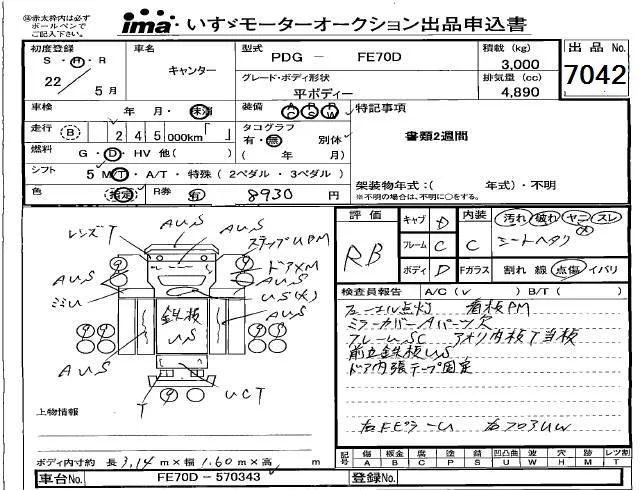 ※赤太枠内は必ず
ボールペンで
ご記入下さい。
ima いすゞモーターオークション出品申込書
初度登録
S・H・R
22 5月
車名
キャンター
型式
PDG － FE70D
グレード・ボディ形状
平ボディー
積載 (kg)
3,000
排気量 (cc)
4,890
出品 No.
7042
車検
年 月・
装備
AC PS PW
特記事項
書類2週間
走行 B 2 4 5 000km「 」
タコグラフ
有・無 別体
( 年 月)
燃料 G・D・HV 他( )
シフト 5 MT・A/T・特殊(2ペダル・3ペダル)
色 R券 有 8930 円
架装物年式:( 年式)・不明
※不明の場合は、不明に○をする。
評価
RB
キャブ D
フレーム C
ボディ D
内装 C
汚れ 破れ ヤニ スレ
シートヘタリ
Fガラス 割れ 線 点傷 イバリ
検査員報告 A/C( v ) B/T( )
看板PM
ミラーカバーAパーツ欠
フレームSC
前立鉄板US
ドア内張テープ固定
レンズT
AUS
ステップUPM
AUS
ドアXM
AUS
ミミU
US(大)
鉄板
US
AUS
AUS
T
UCT
上物情報
ボディ内寸約 長 3.14 m×幅 1.60 m×高 m
記号 傷A 板金B 腐C 塗P 錆S 凹凸曲U 波W 穴H 跡M レツ割T
車台No. FE70D－570343
登録No.